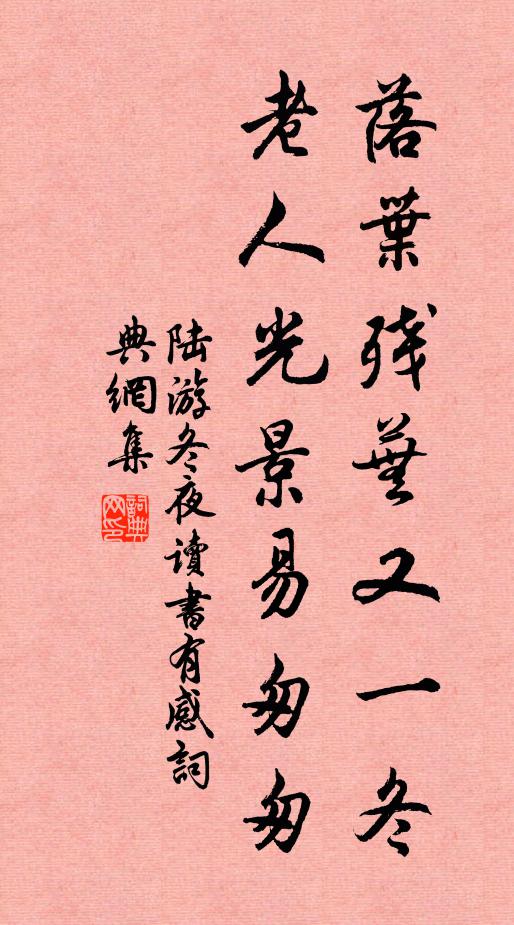 落葉殘蕪又一冬
老人光景易匆匆
陆游冬夜讀書有感詞
典網集
詞典
网印